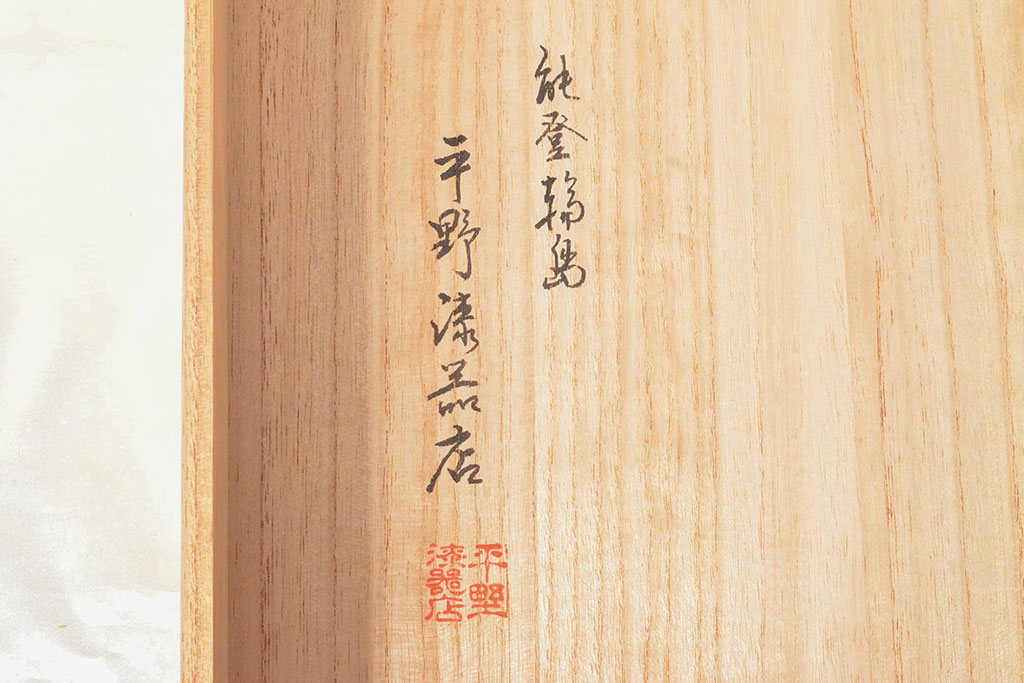 能登輪島
平野漆器店
平野
漆器店